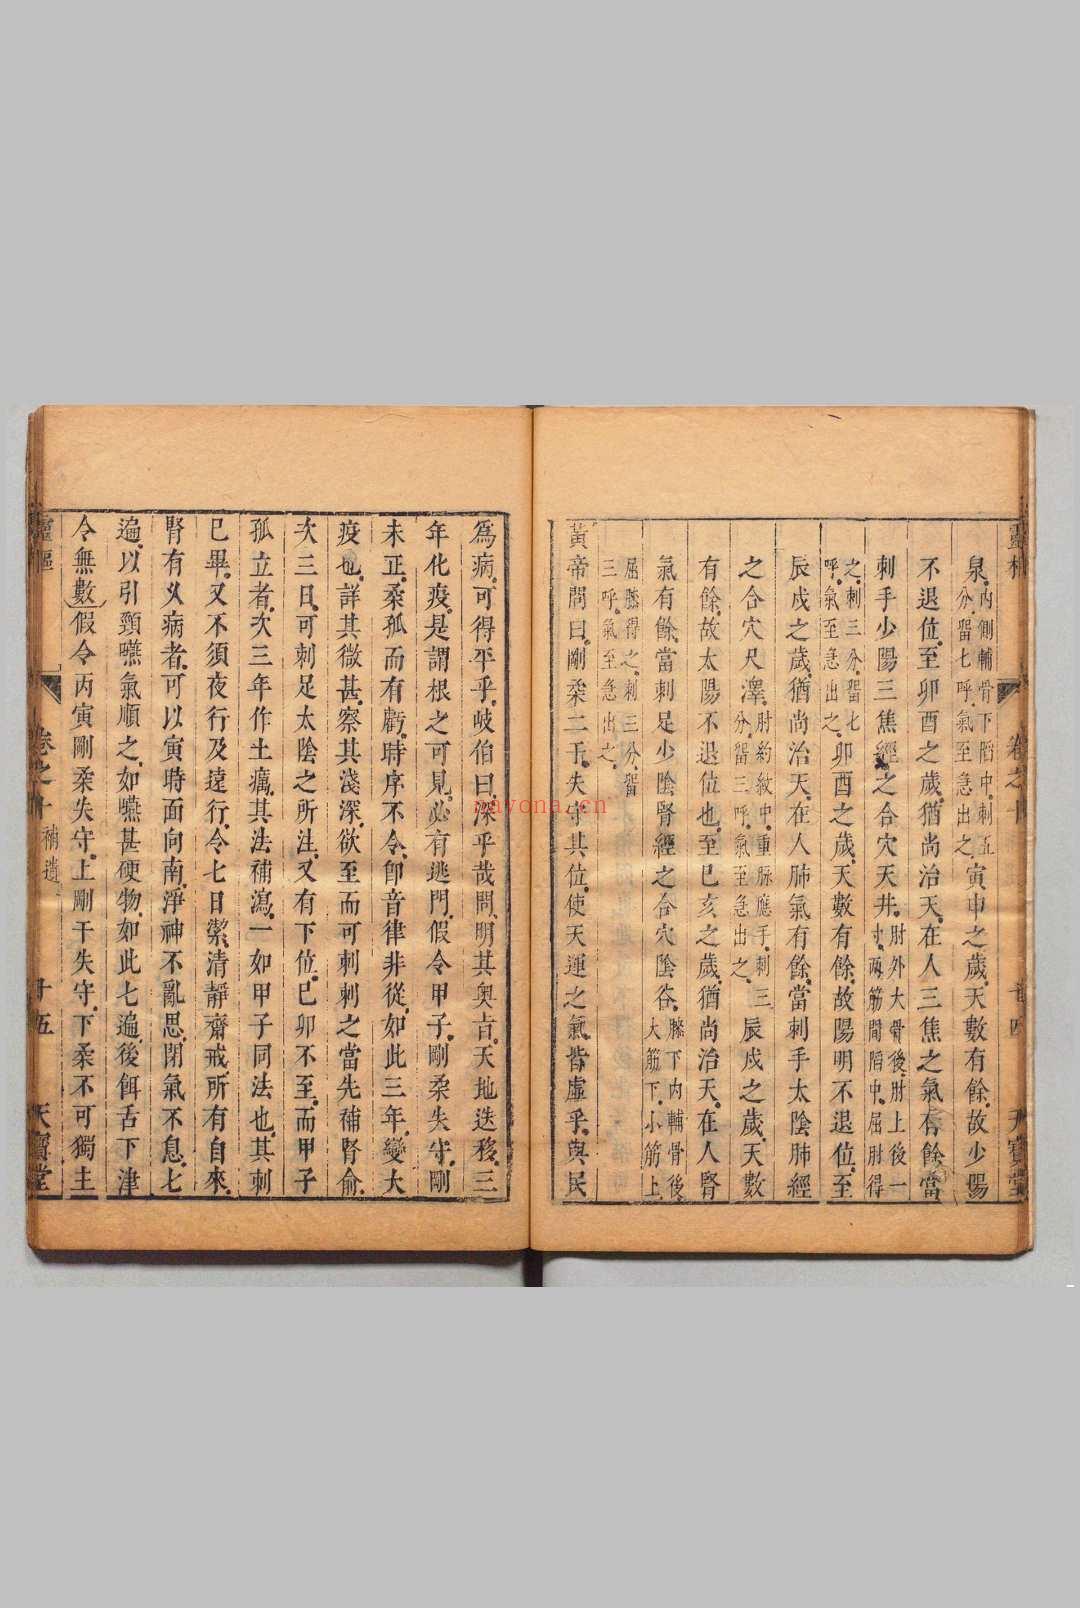 泉內側輔骨下陷中刺五分留七呼氣至急出之寅申之歲天數有餘故少陽
不退位至卯酉之歲猶尚治天在人三焦之氣有餘當
刺手少陽三焦經之合穴天井肘外大骨後肘上後一寸兩筋間陷中屈肘得
之刺三分留七呼氣至急出之卯酉之歲天數有餘故陽明不退位至
辰戌之歲猶尚治天在人肺氣有餘當刺手太陰肺經
之合穴尺澤肘約紋中重脉應手刺三分留三呼氣至急出之辰戌之歲天數
有餘故太陽不退位也至巳亥之歲猶尚治天在人腎
氣有餘當刺足少陰腎經之合穴陰谷膝下內輔骨後大筋下小筋上
屈膝得之刺三分留三呼氣至急出之
黃帝問曰剛柔二干失守其位使天運之氣皆虛乎與民
卷之十
天寶堂
爲病可得平乎岐伯曰深乎哉問明其奥㫖天地迭移三
年化疫是謂根之可見必有逃門假令甲子剛柔失守剛
未正柔孤而有虧時序不令卽音律非從如此三年變大
疫也詳其微甚察其淺深欲至而可刺刺之當先補腎俞
次三日可刺足太陰之所注又有下位巳卯不至而甲子
孤立者次三年作土癘其法補瀉一如甲子同法也其刺
巳畢又不須夜行及遠行令七日潔清靜齋戒所有自來
腎有久病者可以寅時面向南淨神不亂思閉氣不息七
遍以引頸嚥氣順之如嚥甚硬物如此七遍後餌舌下津
令無數假令丙寅剛柔失守上剛干失守下柔不可獨主
靈樞
卷之十
補遺
廿五
天寶堂
nayona.cn